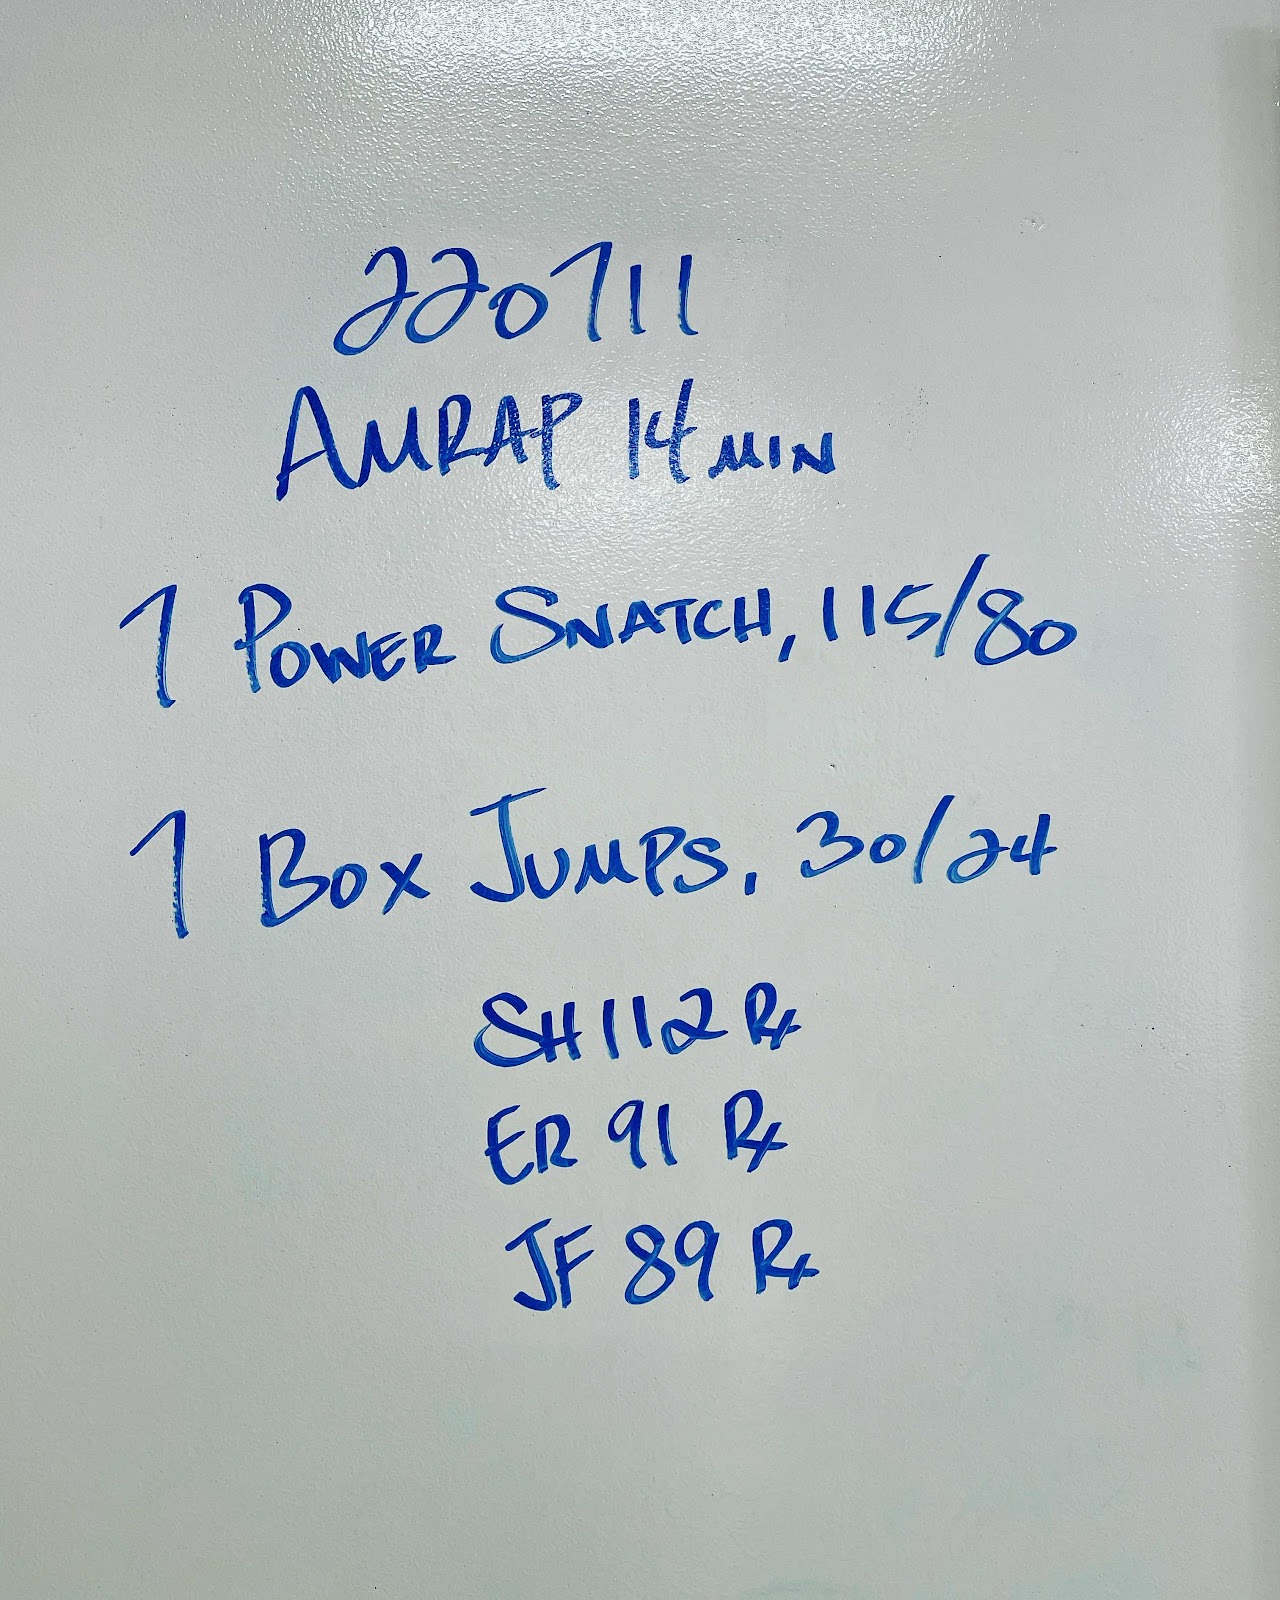 220711
AMRAP 14 MIN
7 POWER SNATCH, 115/80
7 BOX JUMPS, 30/24
SH 112 Rx
ER 91 Rx
JF 89 Rx